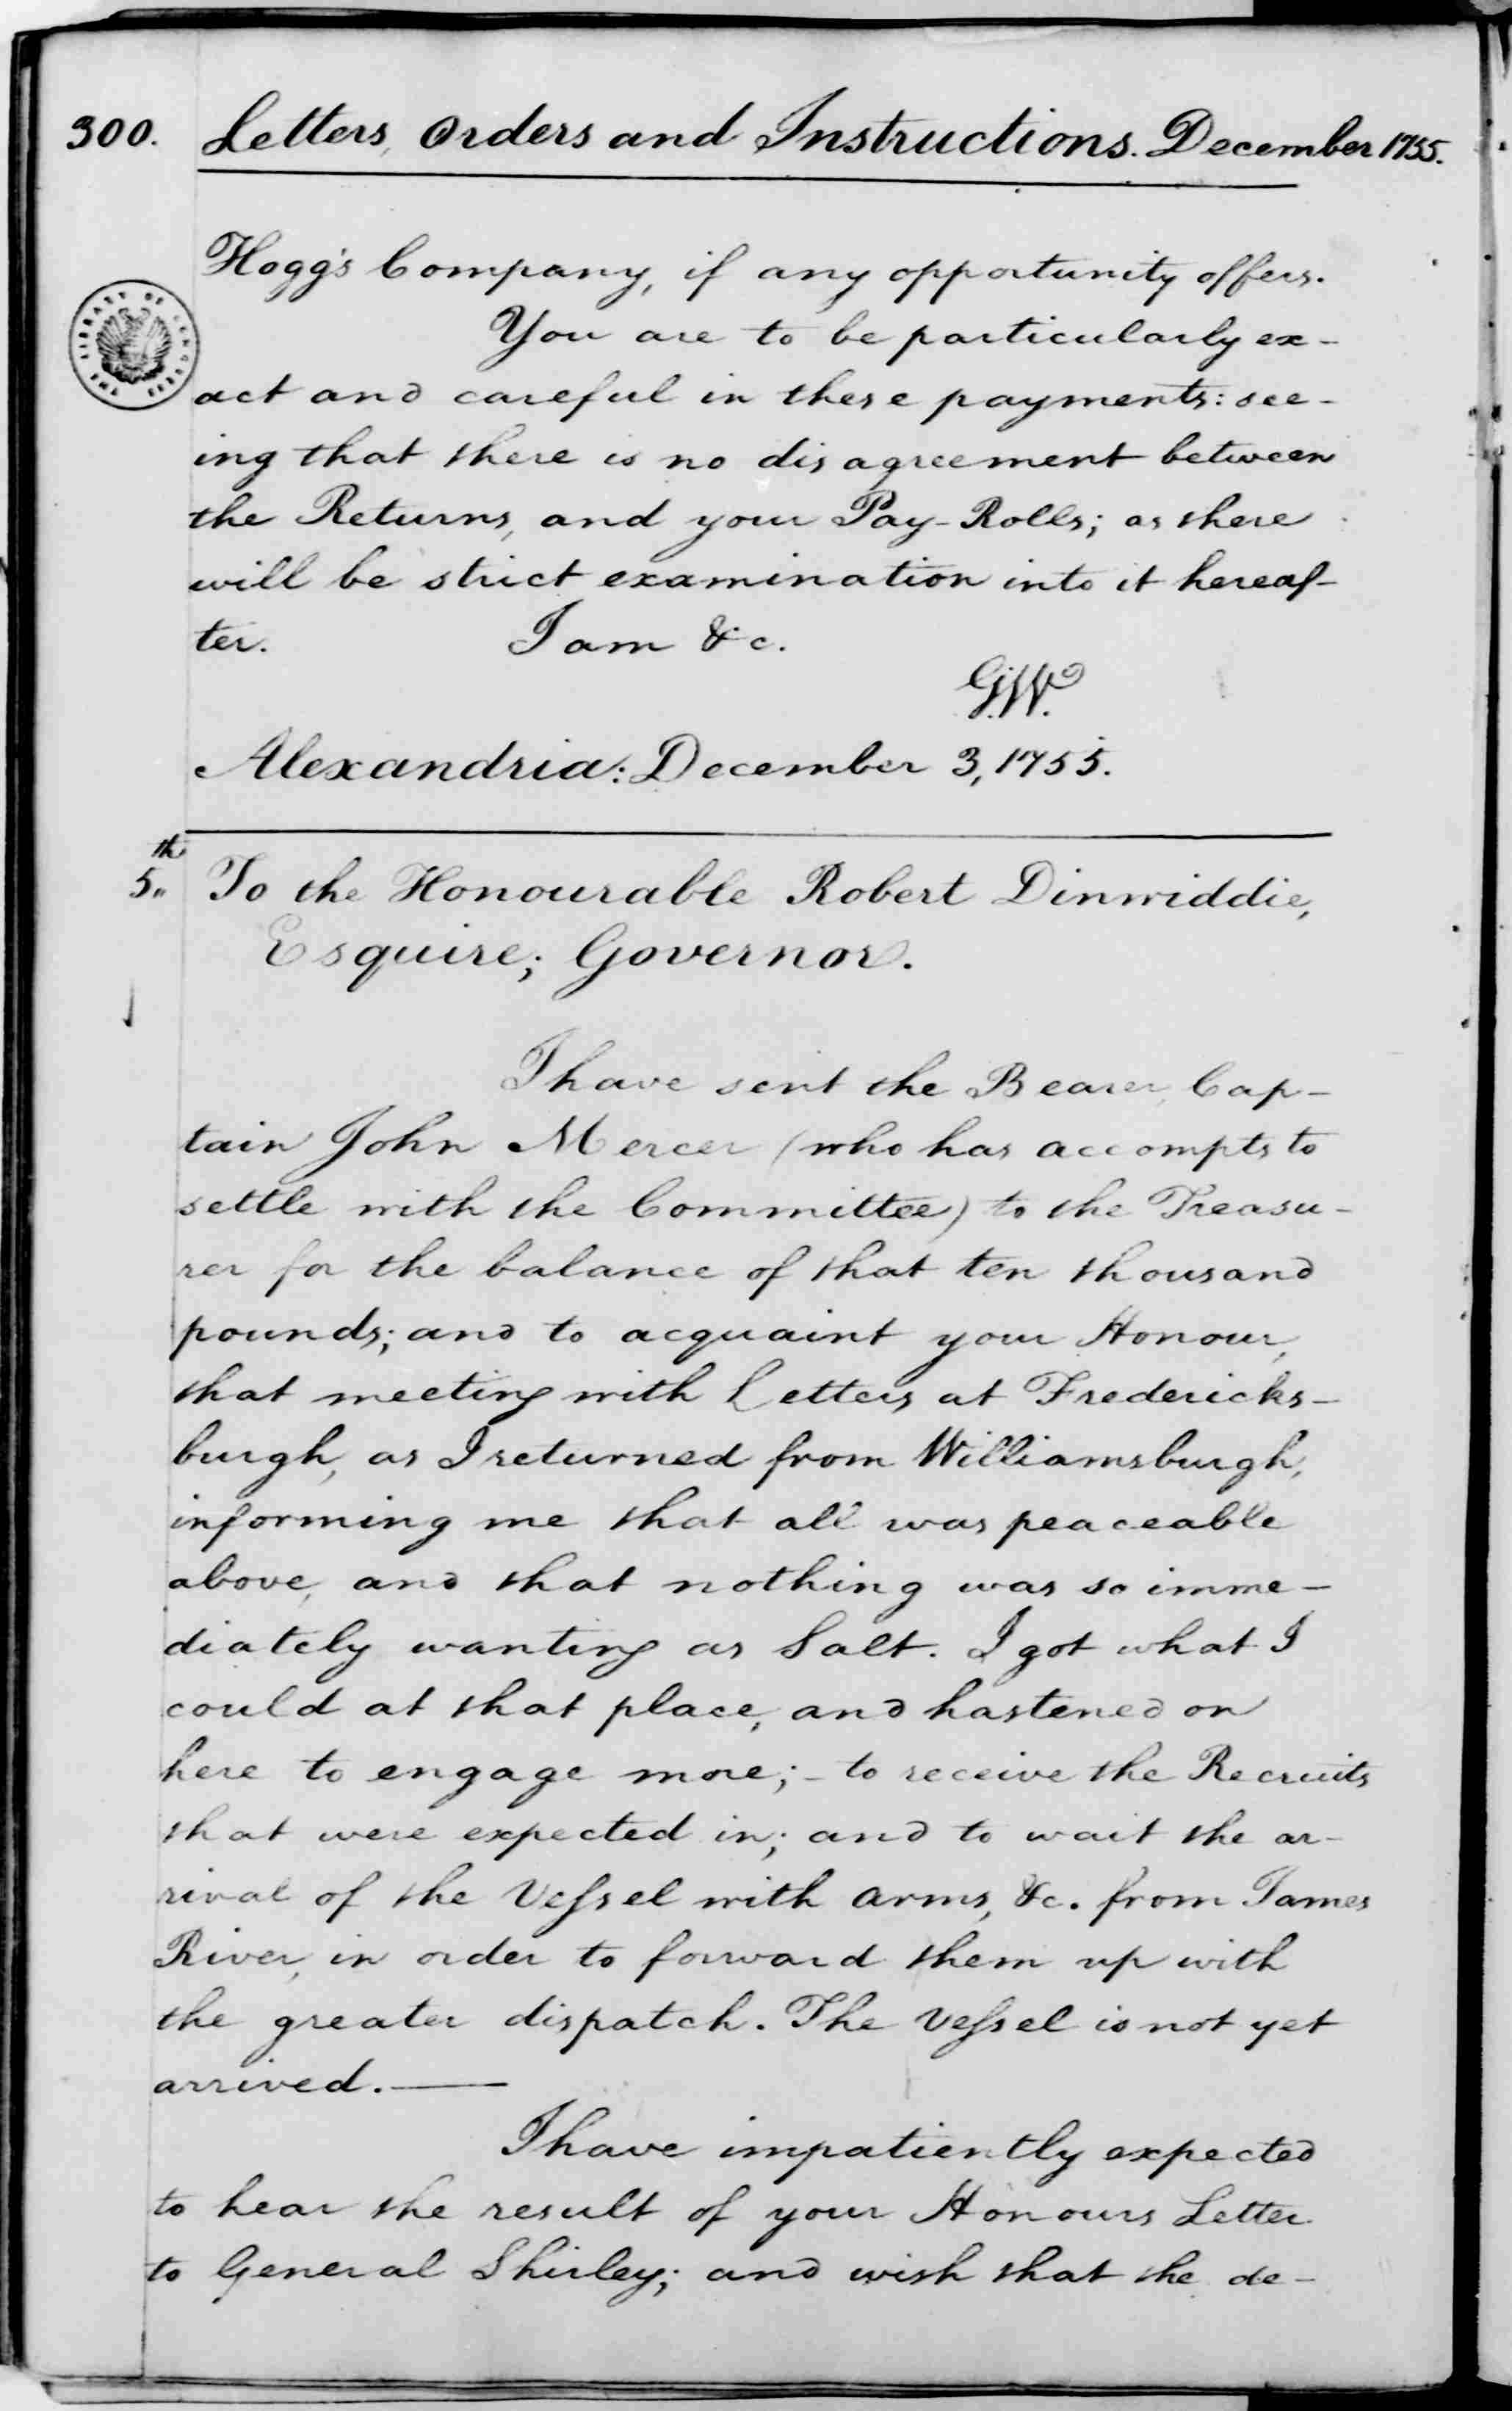 300. Letters, Orders and Instructions. December 1755.
Hogg's Company, if any opportunity offers.
You are to be particularly ex-
act and careful in these payments: see-
ing that there is no disagreement between
the Returns, and your Pay-Rolls; as there
will be strict examination into it hereaf-
ter. I am &c.
G.W.
Alexandria: December 3, 1755.
5th To the Honourable Robert Dinwiddie,
Esquire; Governor.
I have sent the Bearer, Cap-
tain John Mercer (who has accompts to
settle with the Committee) to the Treasu-
rer for the balance of that ten thousand
pounds; and to acquaint your Honour,
that meeting with Letters at Fredericks-
burgh, as I returned from Williamsburgh,
informing me that all was peaceable
above, and that nothing was so imme-
diately wanting as Salt. I got what I
could at that place, and hastened on
here to engage more; - to receive the Recruits
that were expected in; and to wait the ar-
rival of the Vessel with arms, &c. from James
River, in order to forward them up with
the greater dispatch. The Vessel is not yet
arrived.—
I have impatiently expected
to hear the result of your Honours Letter
to General Shirley; and wish that the de-
THE LIBRARY OF CONGRESS